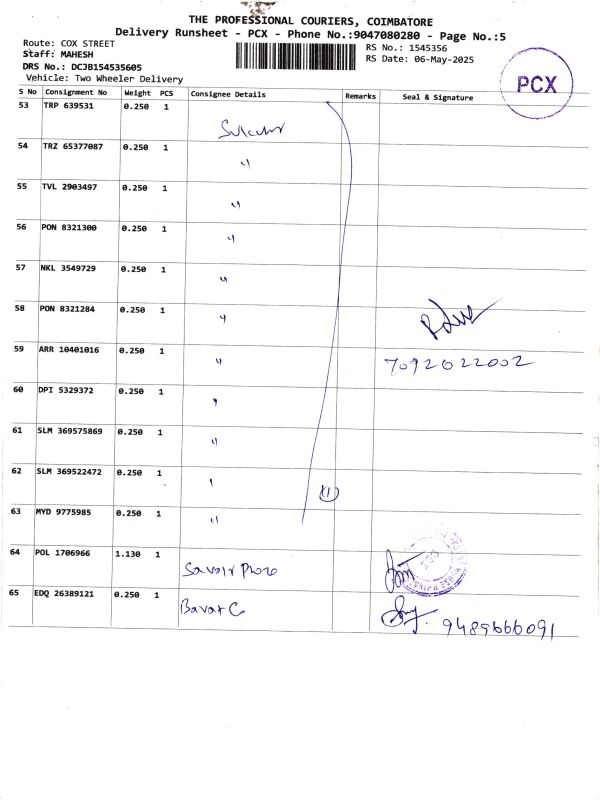 THE PROFESSIONAL COURIERS, COIMBATORE
Delivery Runsheet - PCX - Phone No.:9047080280 - Page No.:5
Route: COX STREET
Staff: MAHESH
DRS No.: DCJB154535605
Vehicle: Two Wheeler Delivery
RS No.: 1545356
RS Date: 06-May-2025
PCX
S No Consignment No Weight PCS Consignee Details Remarks Seal & Signature
53 TRP 639531 0.250 1
54 TRZ 65377087 0.250 1 "
55 TVL 2903497 0.250 1 "
56 PON 8321300 0.250 1 "
57 NKL 3549729 0.250 1 "
58 PON 8321284 0.250 1 "
59 ARR 10401016 0.250 1 " 7092022002
60 DPI 5329372 0.250 1 "
61 SLM 369575869 0.250 1 "
62 SLM 369522472 0.250 1 "
(11)
63 MYD 9775985 0.250 1 "
64 POL 1706966 1.130 1
65 EDQ 26389121 0.250 1 9489666091